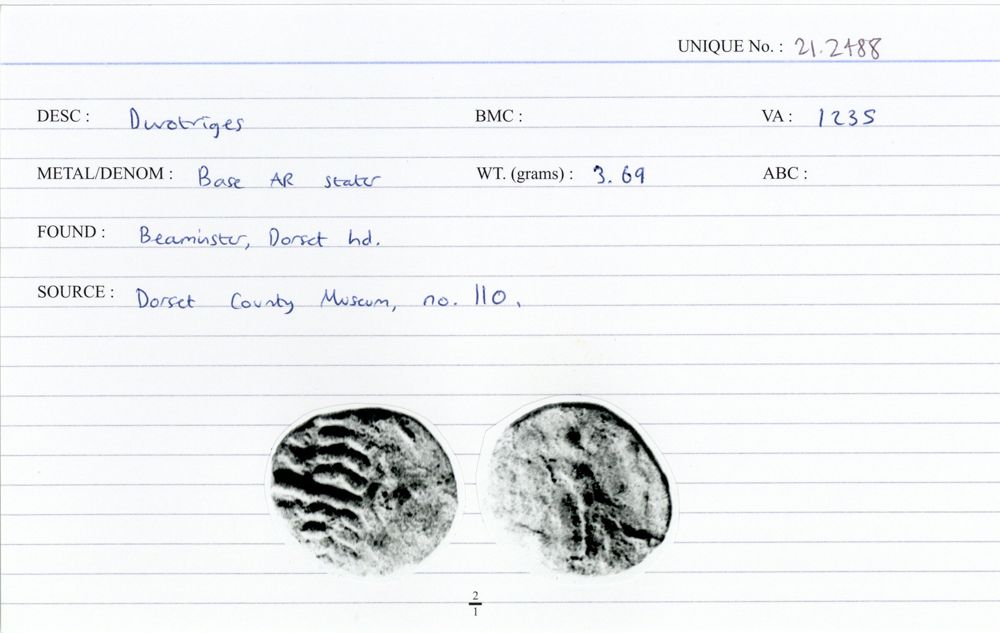 UNIQUE No. : 21.2488
DESC : Durotriges BMC : VA : 1235
METAL/DENOM : Base AR stater WT. (grams) : 3.69 ABC :
FOUND : Beaminster, Dorset hd.
SOURCE : Dorset County Museum, no. 110.
2
1